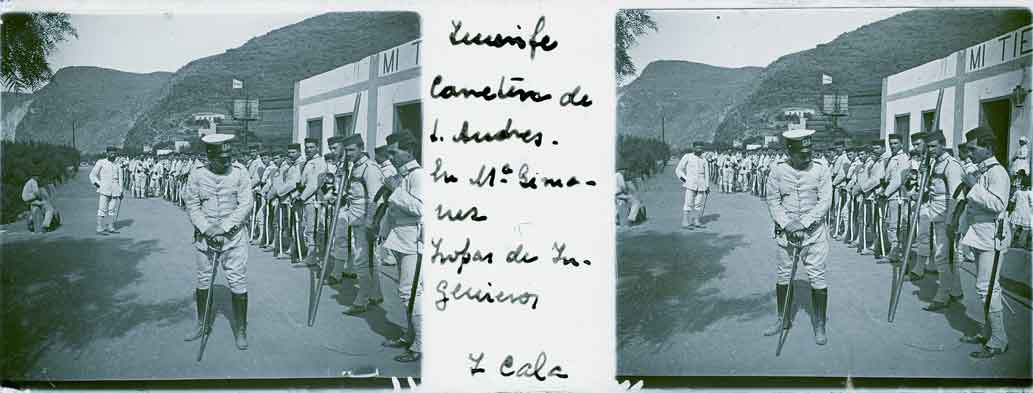 Tenerife
Carretera de
S. Andres.
En Mª Gima-
nez
Tropas de In-
genieros
T Cala
MI TIE
MI TIE